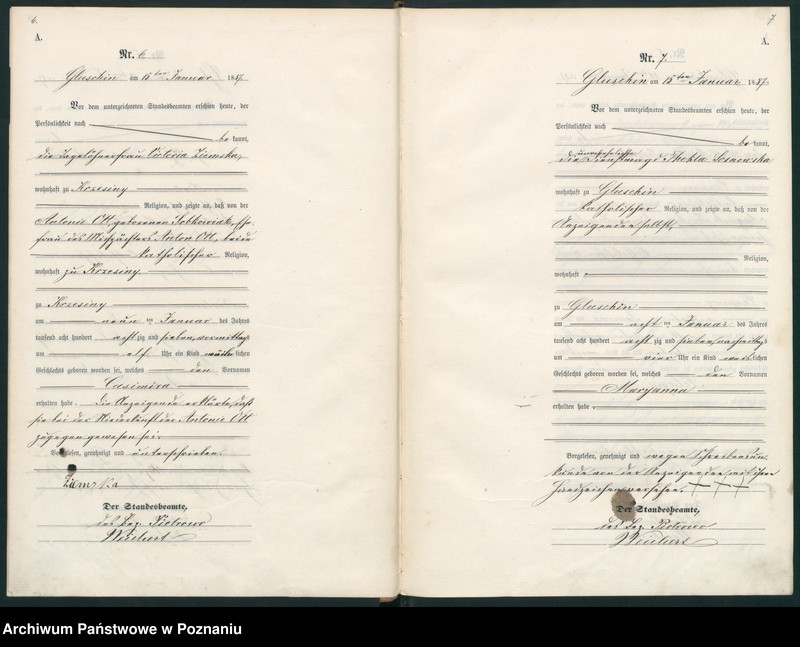 6.
A.
Nr. 6.
Gluschin am 15ten Januar 1887.
Vor dem unterzeichneten Standesbeamten erschien heute, der
Persönlichkeit nach
be kannt,
die Tagelöhnerfrau Victoria Ziemska,
wohnhaft zu Krzesiny
Religion, und zeigte an, daß von der
Antonie Ott, geborenen Sobkowiak, Ehe-
frau des Anton Ott, beide
katholischer Religion,
wohnhaft zu Krzesiny
zu Krzesiny
am neun ten Januar des Jahres
tausend acht hundert acht zig und sieben, vormittags
um elf Uhr ein Kind weiblichen
Geschlechts geboren worden sei, welches den Vornamen
Casimira
erhalten habe. Die Anzeigende erklärte, daß
sie bei der Niederkunft der Antonie Ott
zugegen gewesen sei.
Vorgelesen, genehmigt und unterschrieben.
Ziemska
Der Standesbeamte,
des Bez. Piotrowo
7
A.
Nr. 7.
Gluschin am 15ten Januar 1887.
Vor dem unterzeichneten Standesbeamten erschien heute, der
Persönlichkeit nach
be kannt,
unverehelichte
die Dienstmagd Thekla Sosnowska
wohnhaft zu Gluschin
katholischer Religion, und zeigte an, daß von der
Anzeigenden selbst,
Religion,
wohnhaft
zu Gluschin
am acht ten Januar des Jahres
tausend acht hundert acht zig und sieben, nachmittags
um vier Uhr ein Kind weiblichen
Geschlechts geboren worden sei, welches den Vornamen
Maryanna
erhalten habe.
Vorgelesen, genehmigt und wegen Schreibensun-
kunde von der Anzeigenden mit ihrem
Handzeichen versehen. + + +
Der Standesbeamte,
des Bez. Piotrowo
Archiwum Państwowe w Poznaniu